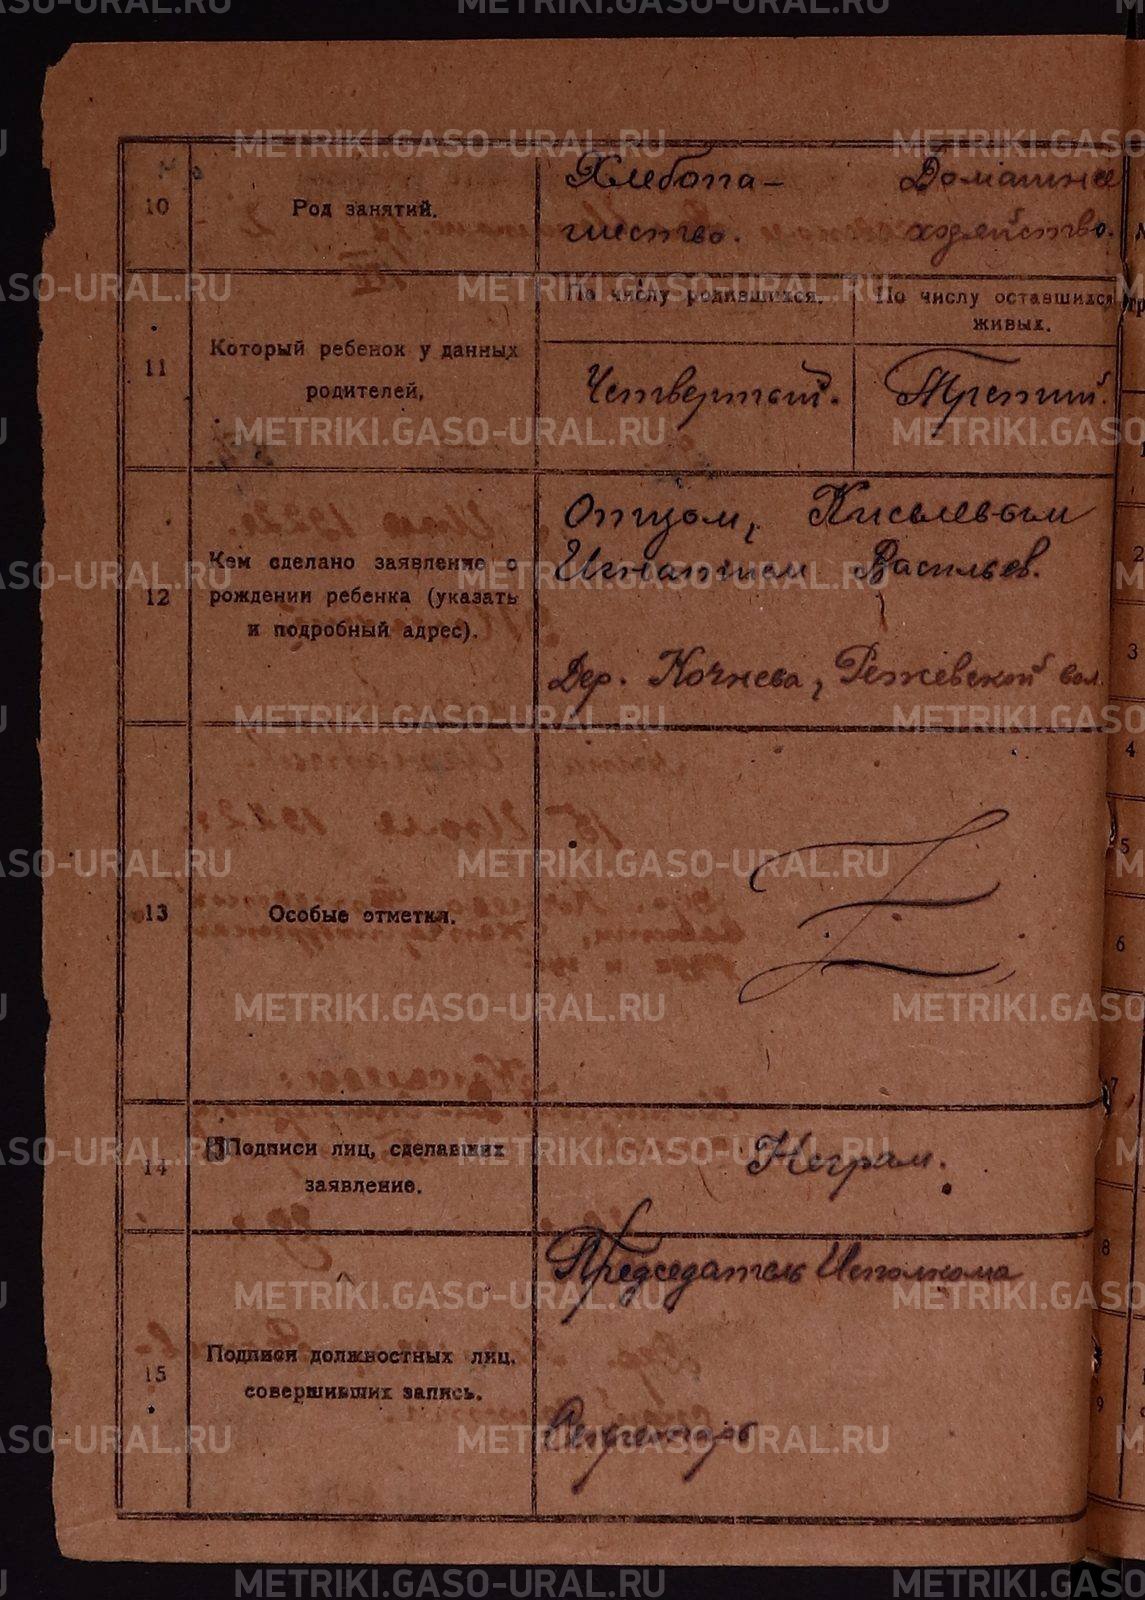 METRIKI.GASO-URAL.RU
10
Род занятий.
Хлебопа-
шество.
Домашнее
хозяйство.
11
Который ребенок у данных
родителей,
По числу родившихся.
По числу оставшихся
живых.
Четвертый.
Третий.
12
Кем сделано заявление о
рождении ребенка (указать
и подробный адрес).
Отцом, Киселевым
Игнатием Васильев.
Дер. Кочнева, Режевской вол.
13
Особые отметки.
14
Подписи лиц, сделавших
заявление.
Неграм.
15
Подписи должностных лиц,
совершивших запись.
Председатель Исполкома
Секретарь
2
3
4
5
6
7
8
9